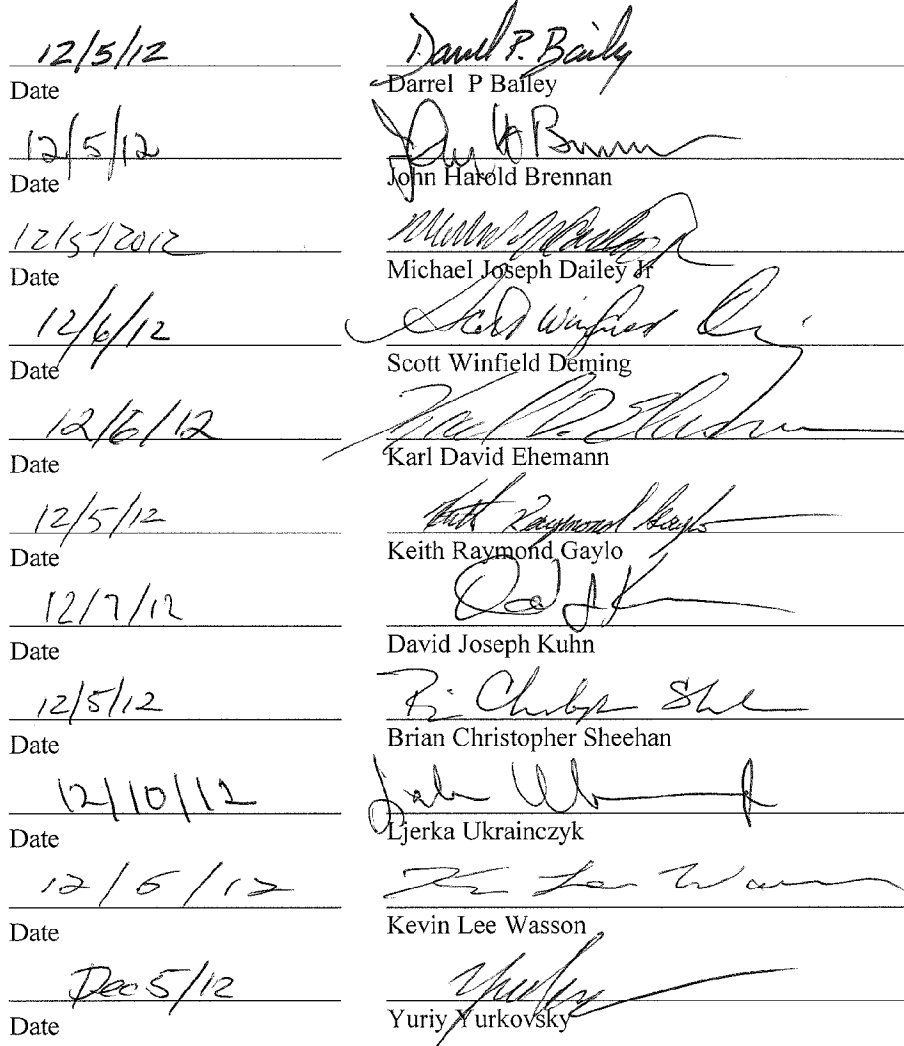 12/5/12 Darrel P. Bailey
Date Darrel P Bailey
12/5/12 John H Brennan
Date John Harold Brennan
12/5/2012
Date Michael Joseph Dailey Jr
12/6/12 Scott Winfield
Date Scott Winfield Deming
12/6/12 Karl D. Ehemann
Date Karl David Ehemann
12/5/12 Keith Raymond Gaylo
Date Keith Raymond Gaylo
12/7/12 David J K
Date David Joseph Kuhn
12/5/12
Date Brian Christopher Sheehan
12/10/12
Date Ljerka Ukrainczyk
12/6/12 Lee
Date Kevin Lee Wasson
Dec 5/12
Date Yuriy Yurkovsky